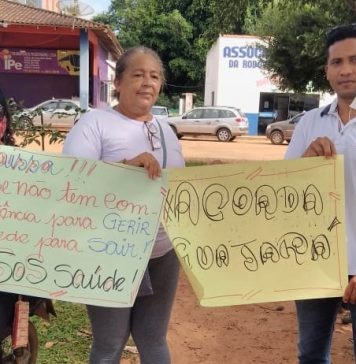 iPe
ASSOC
DA RODO
!!!
e não tem com-
ência para GERIR
ede para SAIR!
SOS Saúde!
ACORDA
GUAJARÁ